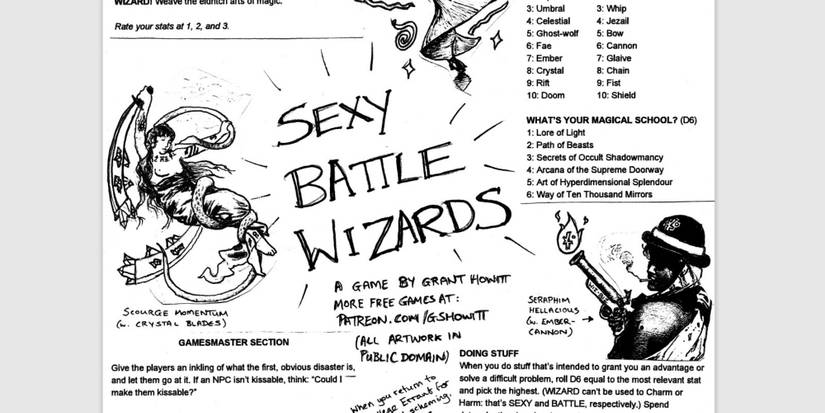 WIZARD! Weave the eldritch arts of magic.
Rate your stats at 1, 2, and 3.
3: Umbral
4: Celestial
5: Ghost-wolf
6: Fae
7: Ember
8: Crystal
9: Rift
10: Doom
3: Whip
4: Jezail
5: Bow
6: Cannon
7: Glaive
8: Chain
9: Fist
10: Shield
WHAT'S YOUR MAGICAL SCHOOL? (D6)
1: Lore of Light
2: Path of Beasts
3: Secrets of Occult Shadowmancy
4: Arcana of the Supreme Doorway
5: Art of Hyperdimensional Splendour
6: Way of Ten Thousand Mirrors
SEXY
BATTLE
WIZARDS
A GAME BY GRANT HOWITT
MORE FREE GAMES AT:
PATREON.COM/GSHOWITT
(ALL ARTWORK IN
PUBLIC DOMAIN)
SCOURGE MOMENTUM
(W. CRYSTAL BLADES)
SERAPHIM
HELLACIOUS
(W. EMBER-
CANNON)
GAMESMASTER SECTION
Give the players an inkling of what the first, obvious disaster is,
and let them go at it. If an NPC isn't kissable, think: "Could I
make them kissable?"
When you return to
Errant for
scheming
DOING STUFF
When you do stuff that's intended to grant you an advantage or
solve a difficult problem, roll D6 equal to the most relevant stat
and pick the highest. (WIZARD can't be used to Charm or
Harm: that's SEXY and BATTLE, respectively.) Spend